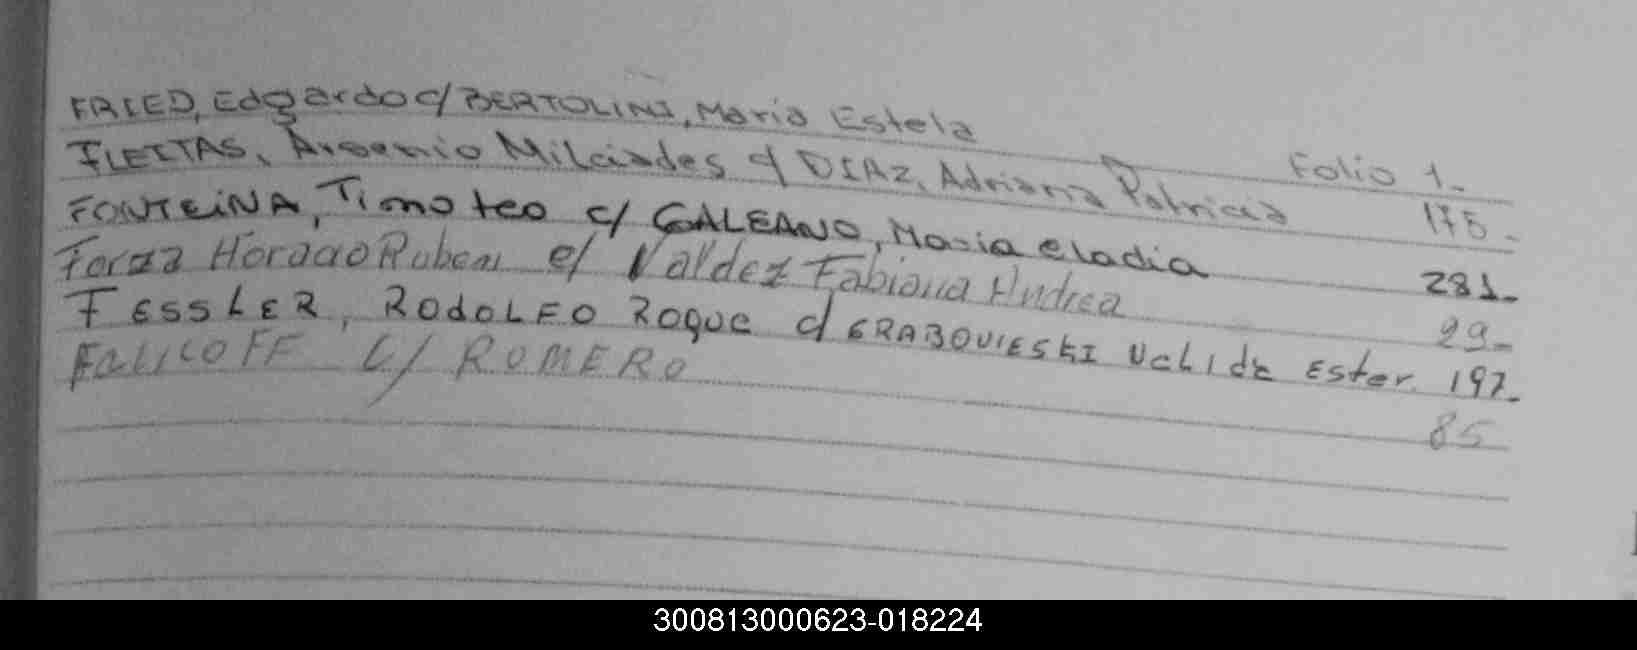 FRIED, Edgardo c/ BERTOLINI, Maria Estela Folio 1.-
FLEITAS, Arsenio Milciades c/ DIAZ, Adriana Patricia 175.-
FONTEINA, Timoteo c/ GALEANO, Maria eladia 281.-
Forza Horacio Ruben c/ Valdez Fabiana Andrea 29.-
FESSLER, RODOLFO Roque c/ GRABOVIESKI Ester 197.-
FALICOFF C/ ROMERO 85
300813000623-018224